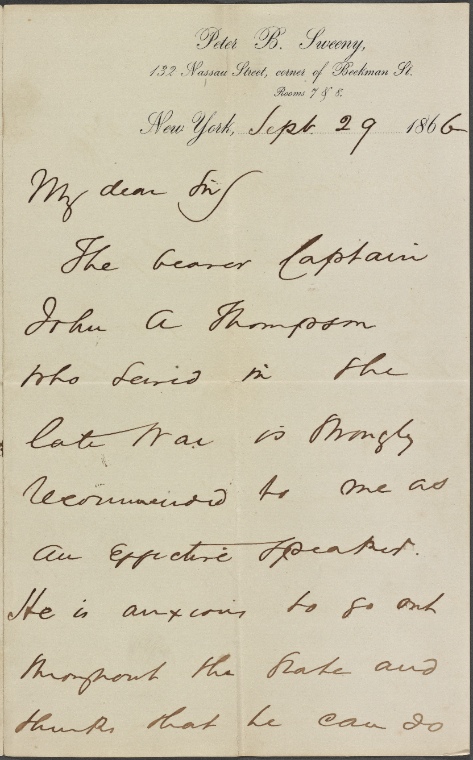 Peter B. Sweeny,
132 Nassau Street, corner of Beekman St.
Rooms 7 & 8.
New York, Sept. 29 1866
My dear Sir
The bearer Captain
John A Thompson
who served in the
late War is strongly
recommended to me as
an effective speaker.
He is anxious to go out
throughout the State and
thinks that he can do